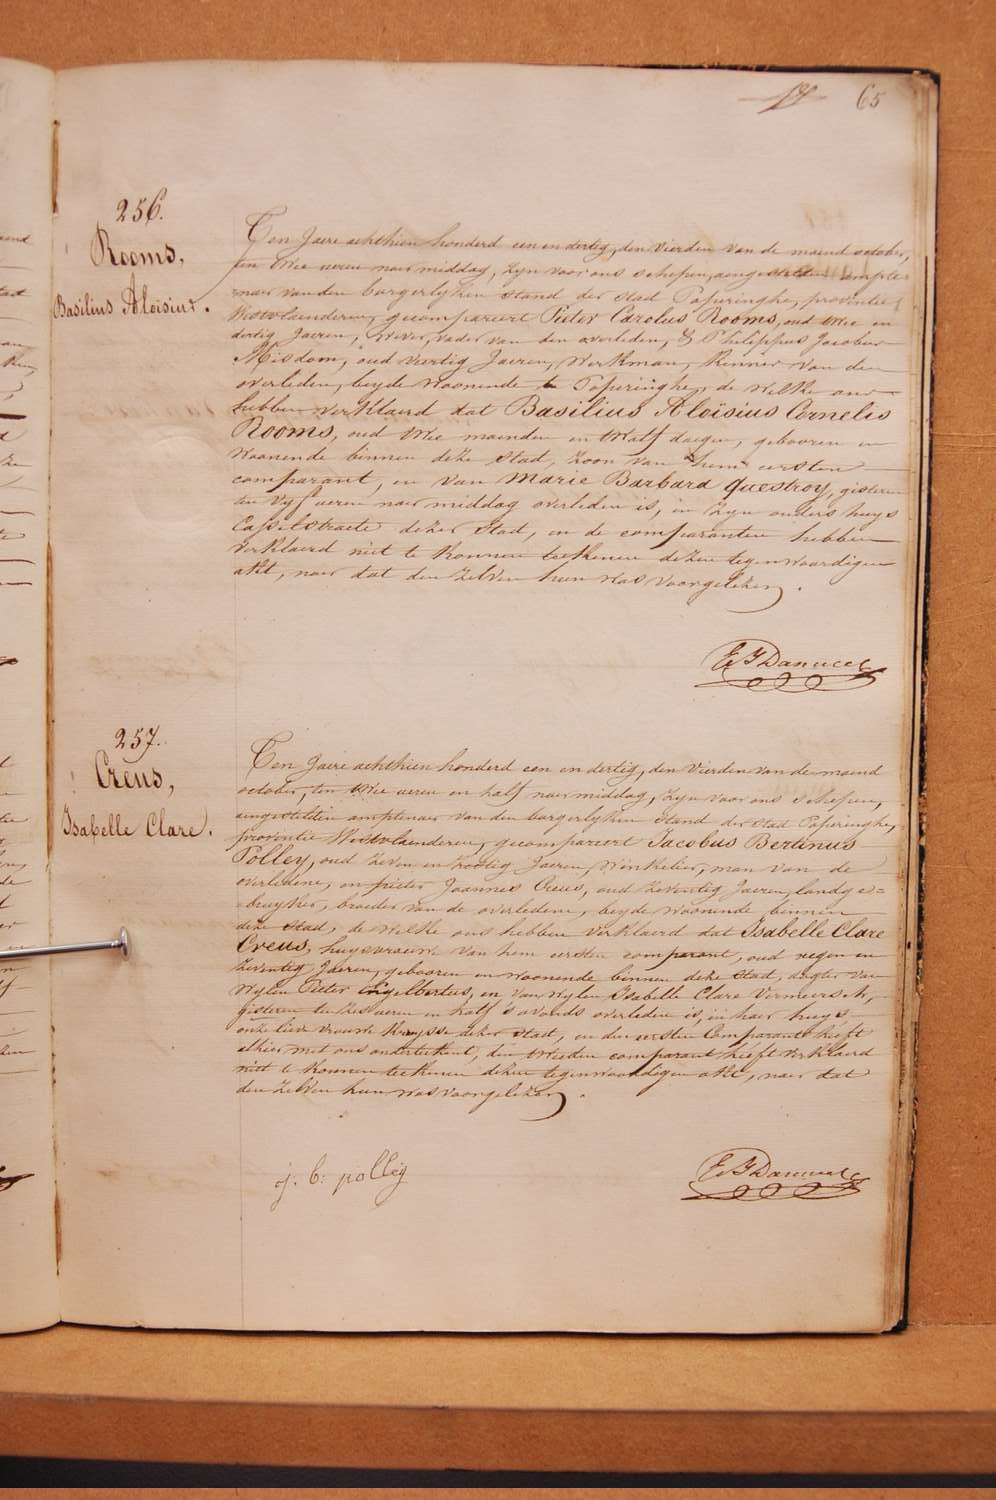 65
256.
Rooms,
Basilius Aloïsius.
Ten Jaere achthien honderd een en dertig, den vierden van de maend october,
ten twee ueren naermiddag, zyn voor ons schepen, aengestelden ampte-
naer van den borgerlyken stand der stad Poperinghe, provintie
Westvlaenderen, gecompareert Pieter Carolus Rooms, oud twee en
dertig Jaeren, wever, vader van den overleden, & Philippus Jacobus
Misdom, oud veertig Jaeren, Werkman, kennis van den
overleden, beyde woonende te Poperinghe, de welke ons
hebben verklaerd dat Basilius Aloïsius Cornelis
Rooms, oud twee maenden en twalf daegen, gebooren en
woonende binnen deze stad, zoon van hem eersten
comparant, en van Marie Barbara Questroy, gisteren
ten vyf ueren naermiddag overleden is, in zyn ouders huys
Casselstraete dezer stad, en de comparanten hebben
verklaerd niet te konnen teekenen dezen tegenwoordigen
akt, naer dat den zelven hun was voorgelezen.
257.
Creus,
Isabelle Clare.
Ten Jaere achthien honderd een en dertig, den vierden van de maend
october, ten twee ueren en half naermiddag, zyn voor ons schepen,
aengestelden amptenaer van den borgerlyken stand der stad Poperinghe,
provintie Westvlaenderen, gecompareert Jacobus Bertinus
Polley, oud zeven en tzestig Jaeren, winkelier, man van de
overledene, en pieter Joannes Creus, oud zeventig Jaeren, landge-
bruyker, broeder van de overledene, beyde woonende binnen
deze stad, de welke ons hebben verklaerd dat Isabelle Clare
Creus, huysvrouwe van hem eersten comparant, oud negen en
zeventig Jaeren, gebooren en woonende binnen deze stad, dogter van
wylen Pieter Engelbertus, en van wylen Isabelle Clare Vermeersch,
gisteren ten zes ueren en half 's avonds overleden is, in haer huys
onze lieve vrouwe kruysse dezer stad, en den eersten Comparant heeft
alhier met ons onderteekent, den tweeden comparant heeft verklaerd
niet te konnen teekenen dezen tegenwoordigen akt, naer dat
den zelven hun was voorgelezen.
j. b: polleÿ